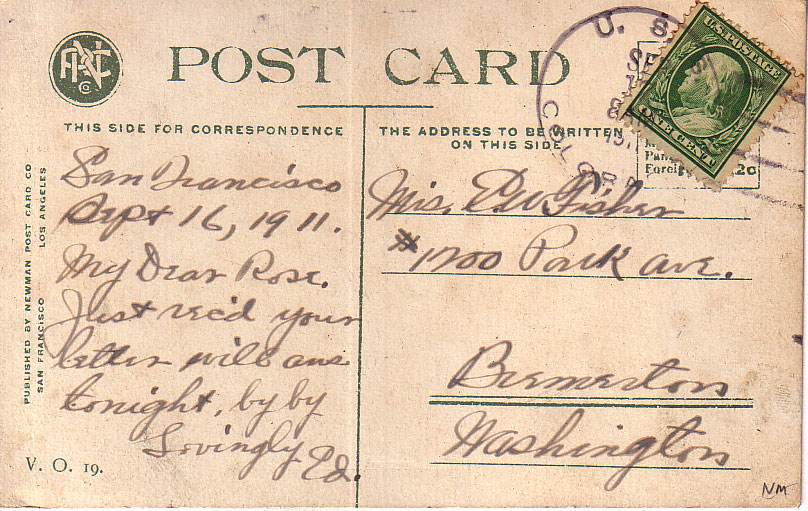 POST CARD
THIS SIDE FOR CORRESPONDENCE
THE ADDRESS TO BE WRITTEN
ON THIS SIDE
U. S.
U.S. POSTAGE
ONE CENT
Foreign 2c
San Francisco
Sept 16, 1911.
My Dear Rose.
Just rec'd your
letter will ans
tonight, by by
Lovingly Ed.
Mrs. E. W. Fisher
#1700 Park ave.
Bremerton
Washington
PUBLISHED BY NEWMAN POST CARD CO
SAN FRANCISCO LOS ANGELES
V. O. 19.
NM